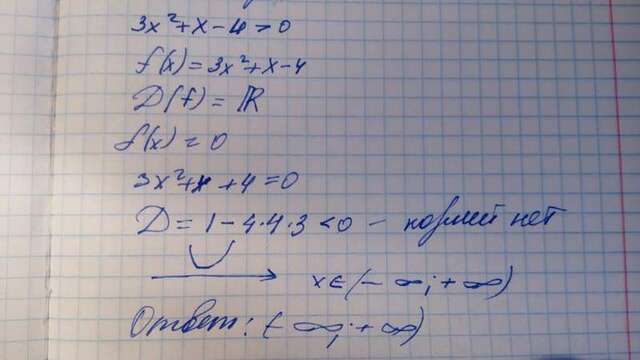 3x²+x-4>0
f(x)=3x²+x-4
D(f)=ℝ
f(x)=0
3x²+x+4=0
D=1-4·4·3<0 – корней нет
x∈(-∞;+∞)
Ответ: (-∞;+∞)